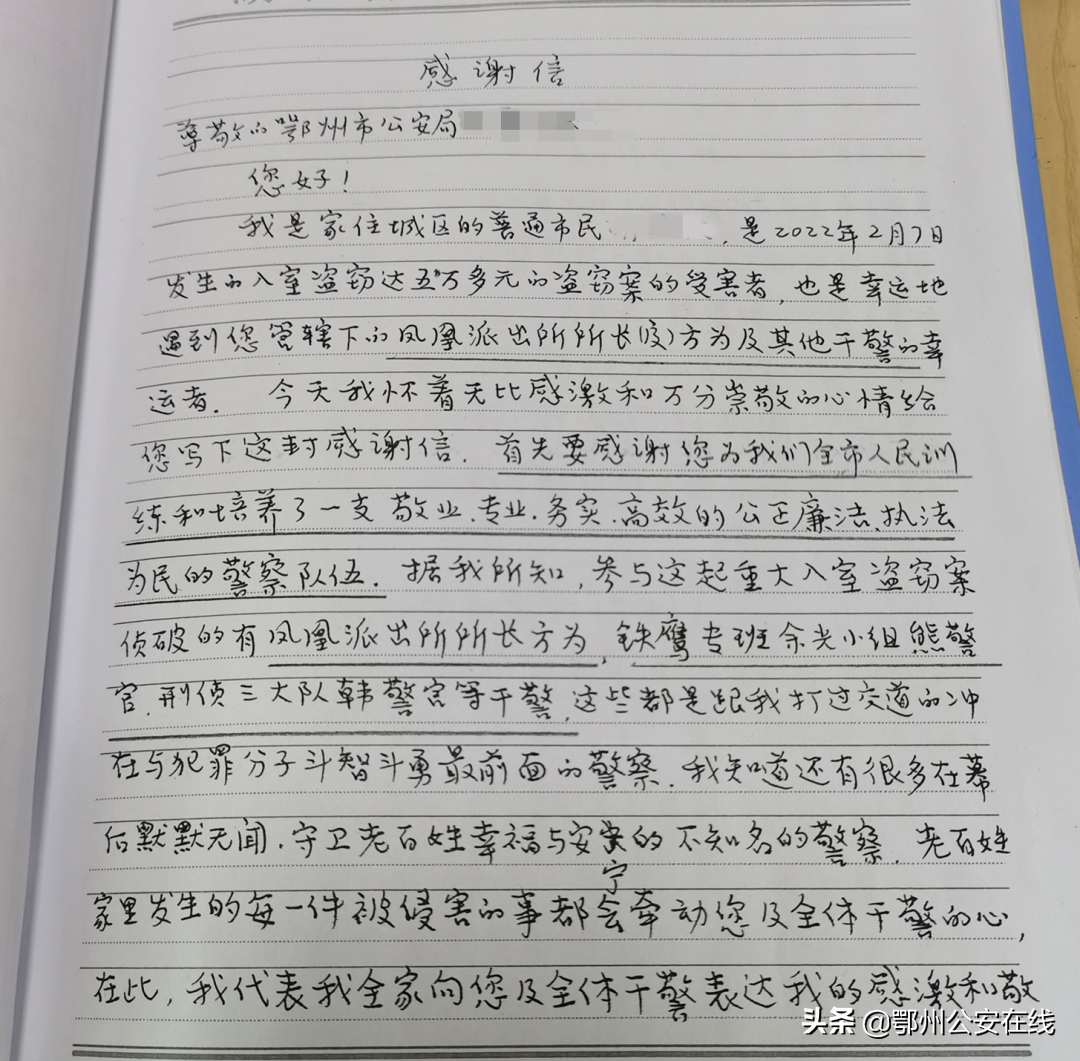 感谢信
尊敬的鄂州市公安局
您好！
我是家住城区的普通市民 ，是2022年2月7日
发生的入室盗窃达五万多元的盗窃案的受害者，也是幸运地
遇到您管辖下的凤凰派出所所长(及)方为及其他干警的幸
运者. 今天我怀着无比感激和万分崇敬的心情给
您写下这封感谢信. 首先要感谢您为我们全市人民训
练和培养了一支敬业.专业.务实.高效的公正廉洁.执法
为民的警察队伍. 据我所知，参与这起重大入室盗窃案
侦破的有凤凰派出所所长方为，铁鹰专班余光小组熊警
官.刑侦三大队韩警官等干警，这些都是跟我打过交道的冲
在与犯罪分子斗智斗勇最前面的警察. 我知道还有很多在幕
后默默无闻.守卫老百姓幸福与安宁的不知名的警察. 老百姓
家里发生的每一件被侵害的事都会牵动您及全体干警的心，
在此，我代表我全家向您及全体干警表达我的感激和敬
头条 @鄂州公安在线